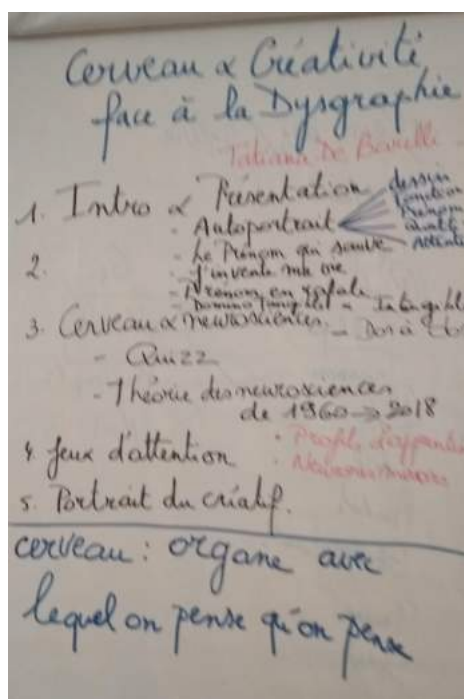 Cerveau & Créativité
face à la Dysgraphie
Tatiana De Barelli
1. Intro & Présentation
- Autoportrait
dessin
fonction
Prénom
qualité
2.
- Le Prénom qui sauve
- J'invente ma vie
- Prénom en rafale
- Domino
3. Cerveau & neurosciences
- Dos à
- Quizz
- Théorie des neurosciences
de 1960 → 2018
4. Jeux d'attention
• Profils
• Neurones
5. Portrait du créatif.
cerveau : organe avec
lequel on pense qu'on pense